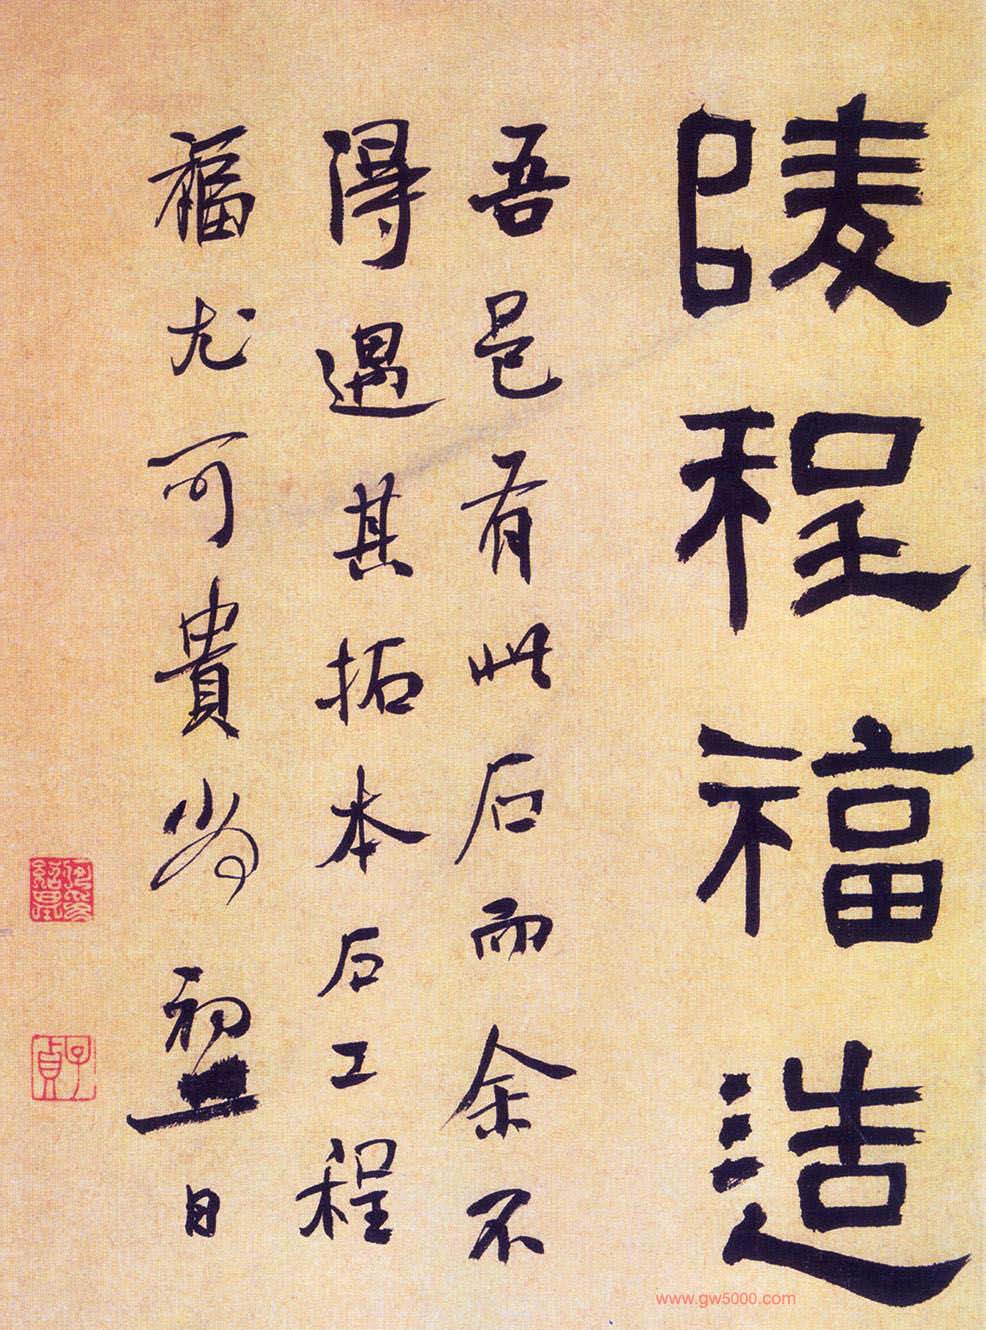 陵程福造
吾邑有此石而余不
得遇其拓本石工程
福尤可貴 初 日
子貞
www.gw5000.com